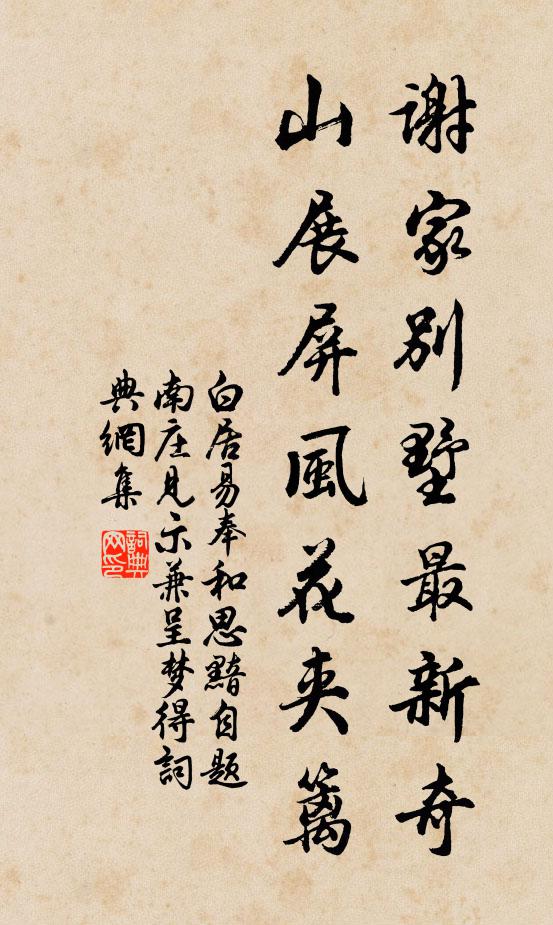 謝家別墅最新奇
山展屏風花夾籬
白居易奉和思黯自題
南庄見示兼呈梦得詞
典網集
詞典
网印